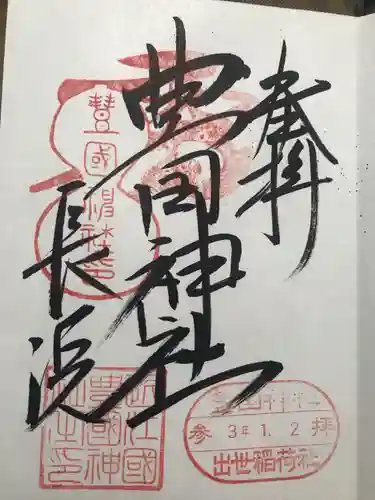 奉拝
豊国神社
長浜
豊國神社印
近江國
豊國神
社之印
豊国神社
参 3年1.2 拝
出世稲荷社